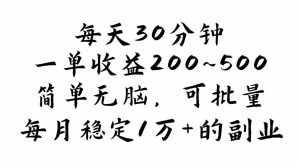 每天30分钟
一单收益200~500
简单无脑，可批量
每月稳定1万+的副业